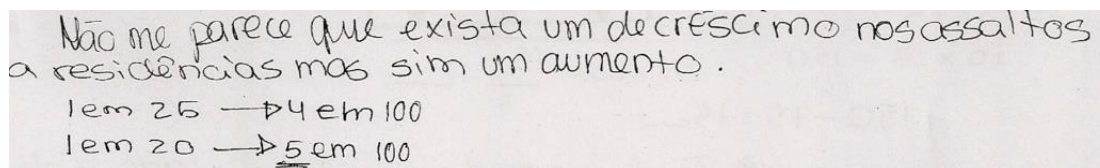 Não me parece que exista um decréscimo nos assaltos
a residências mas sim um aumento.
1 em 25 → 4 em 100
1 em 20 → 5 em 100